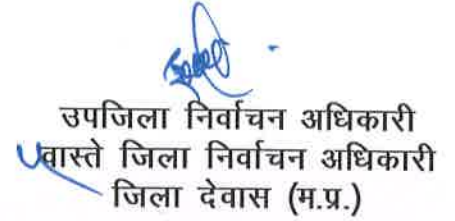 उपजिला निर्वाचन अधिकारी
वास्ते जिला निर्वाचन अधिकारी
जिला देवास (म.प्र.)